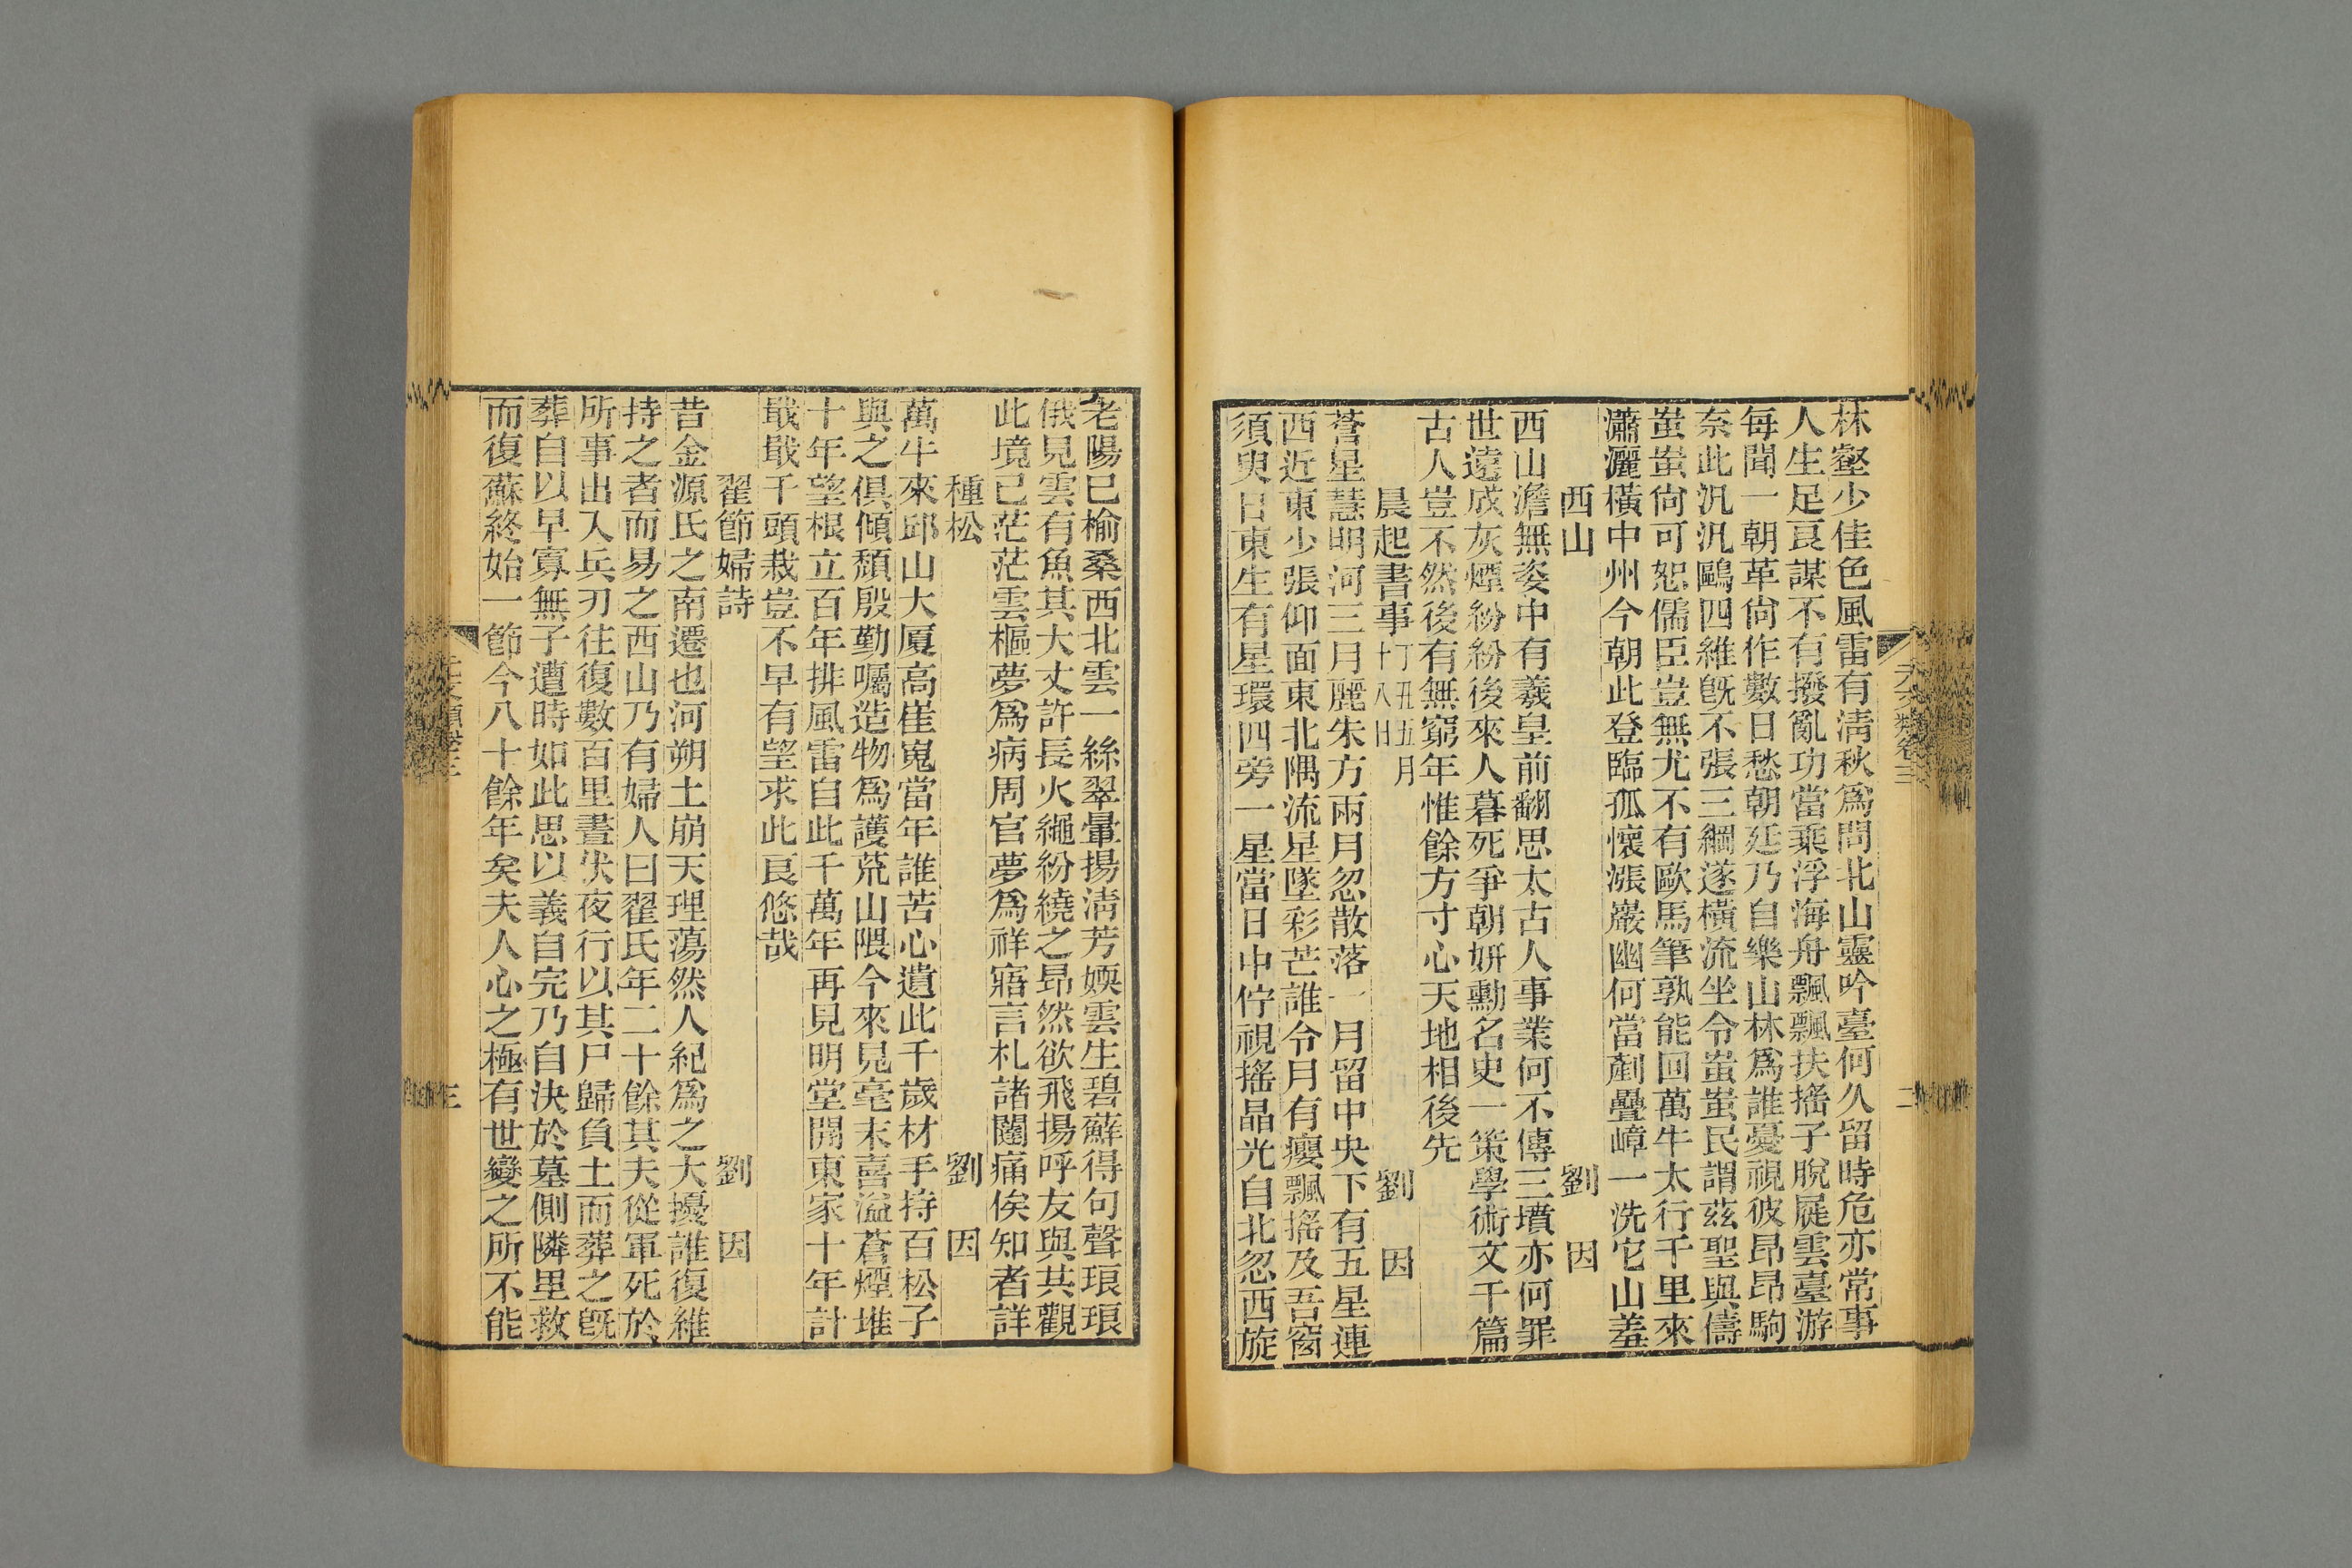 林壑少佳色風雷有清秋爲問北山靈吟臺何久留時危亦常事
人生足良謀不有撥亂功當乘浮海舟飄飄扶搖子脫屣雲臺游
每聞一朝革尙作數日愁朝廷乃自樂山林爲誰憂視彼昂昂駒
奈此汎汎鷗四維旣不張三綱遂橫流坐令蚩蚩民謂茲聖與儔
蚩蚩尙可恕儒臣豈無尤不有歐馬筆孰能回萬牛太行千里來
瀟灑橫中州今朝此登臨孤懷漲巖幽何當剷疊嶂一洗它山羞
西山 劉因
西山澹無姿中有羲皇前翻思太古人事業何不傳三墳亦何罪
世遠成灰煙紛紛後來人暮死爭朝妍勳名史一策學術文千篇
古人豈不然後有無窮年惟餘方寸心天地相後先
晨起書事丁丑五月十八日 劉因
蒼星慧明河三月麗朱方兩月忽散落一月留中央下有五星連
西近東少張仰面東北隅流星墜彩芒誰令月有癭飄搖及吾窗
須臾日東生有星環四旁一星當日中佇視搖晶光自北忽西旋
元文類卷三
二
老陽巳榆桑西北雲一絲翠暈揚淸芳媆雲生碧蘚得句聲琅琅
俄見雲有魚其大丈許長火繩紛繞之昂然欲飛揚呼友與共觀
此境已茫茫雲樞夢爲病周官夢爲祥寤言札諸闥痛俟知者詳
種松 劉因
萬牛來邱山大厦高崔嵬當年誰苦心遺此千歲材手持百松子
與之俱傾頽殷勤囑造物爲護荒山隈今來見毫末喜溢蒼煙堆
十年望根立百年排風雷自此千萬年再見明堂開東家十年計
戢戢千頭栽豈不早有望求此良悠哉
翟節婦詩 劉因
昔金源氏之南遷也河朔土崩天理蕩然人紀爲之大擾誰復維
持之者而易之西山乃有婦人曰翟氏年二十餘其夫從軍死於
所事出入兵刃往復數百里晝伏夜行以其尸歸負土而葬之旣
葬自以早寡無子遭時如此思以義自完乃自決於墓側隣里救
而復蘇終始一節今八十餘年矣夫人心之極有世變之所不能
三